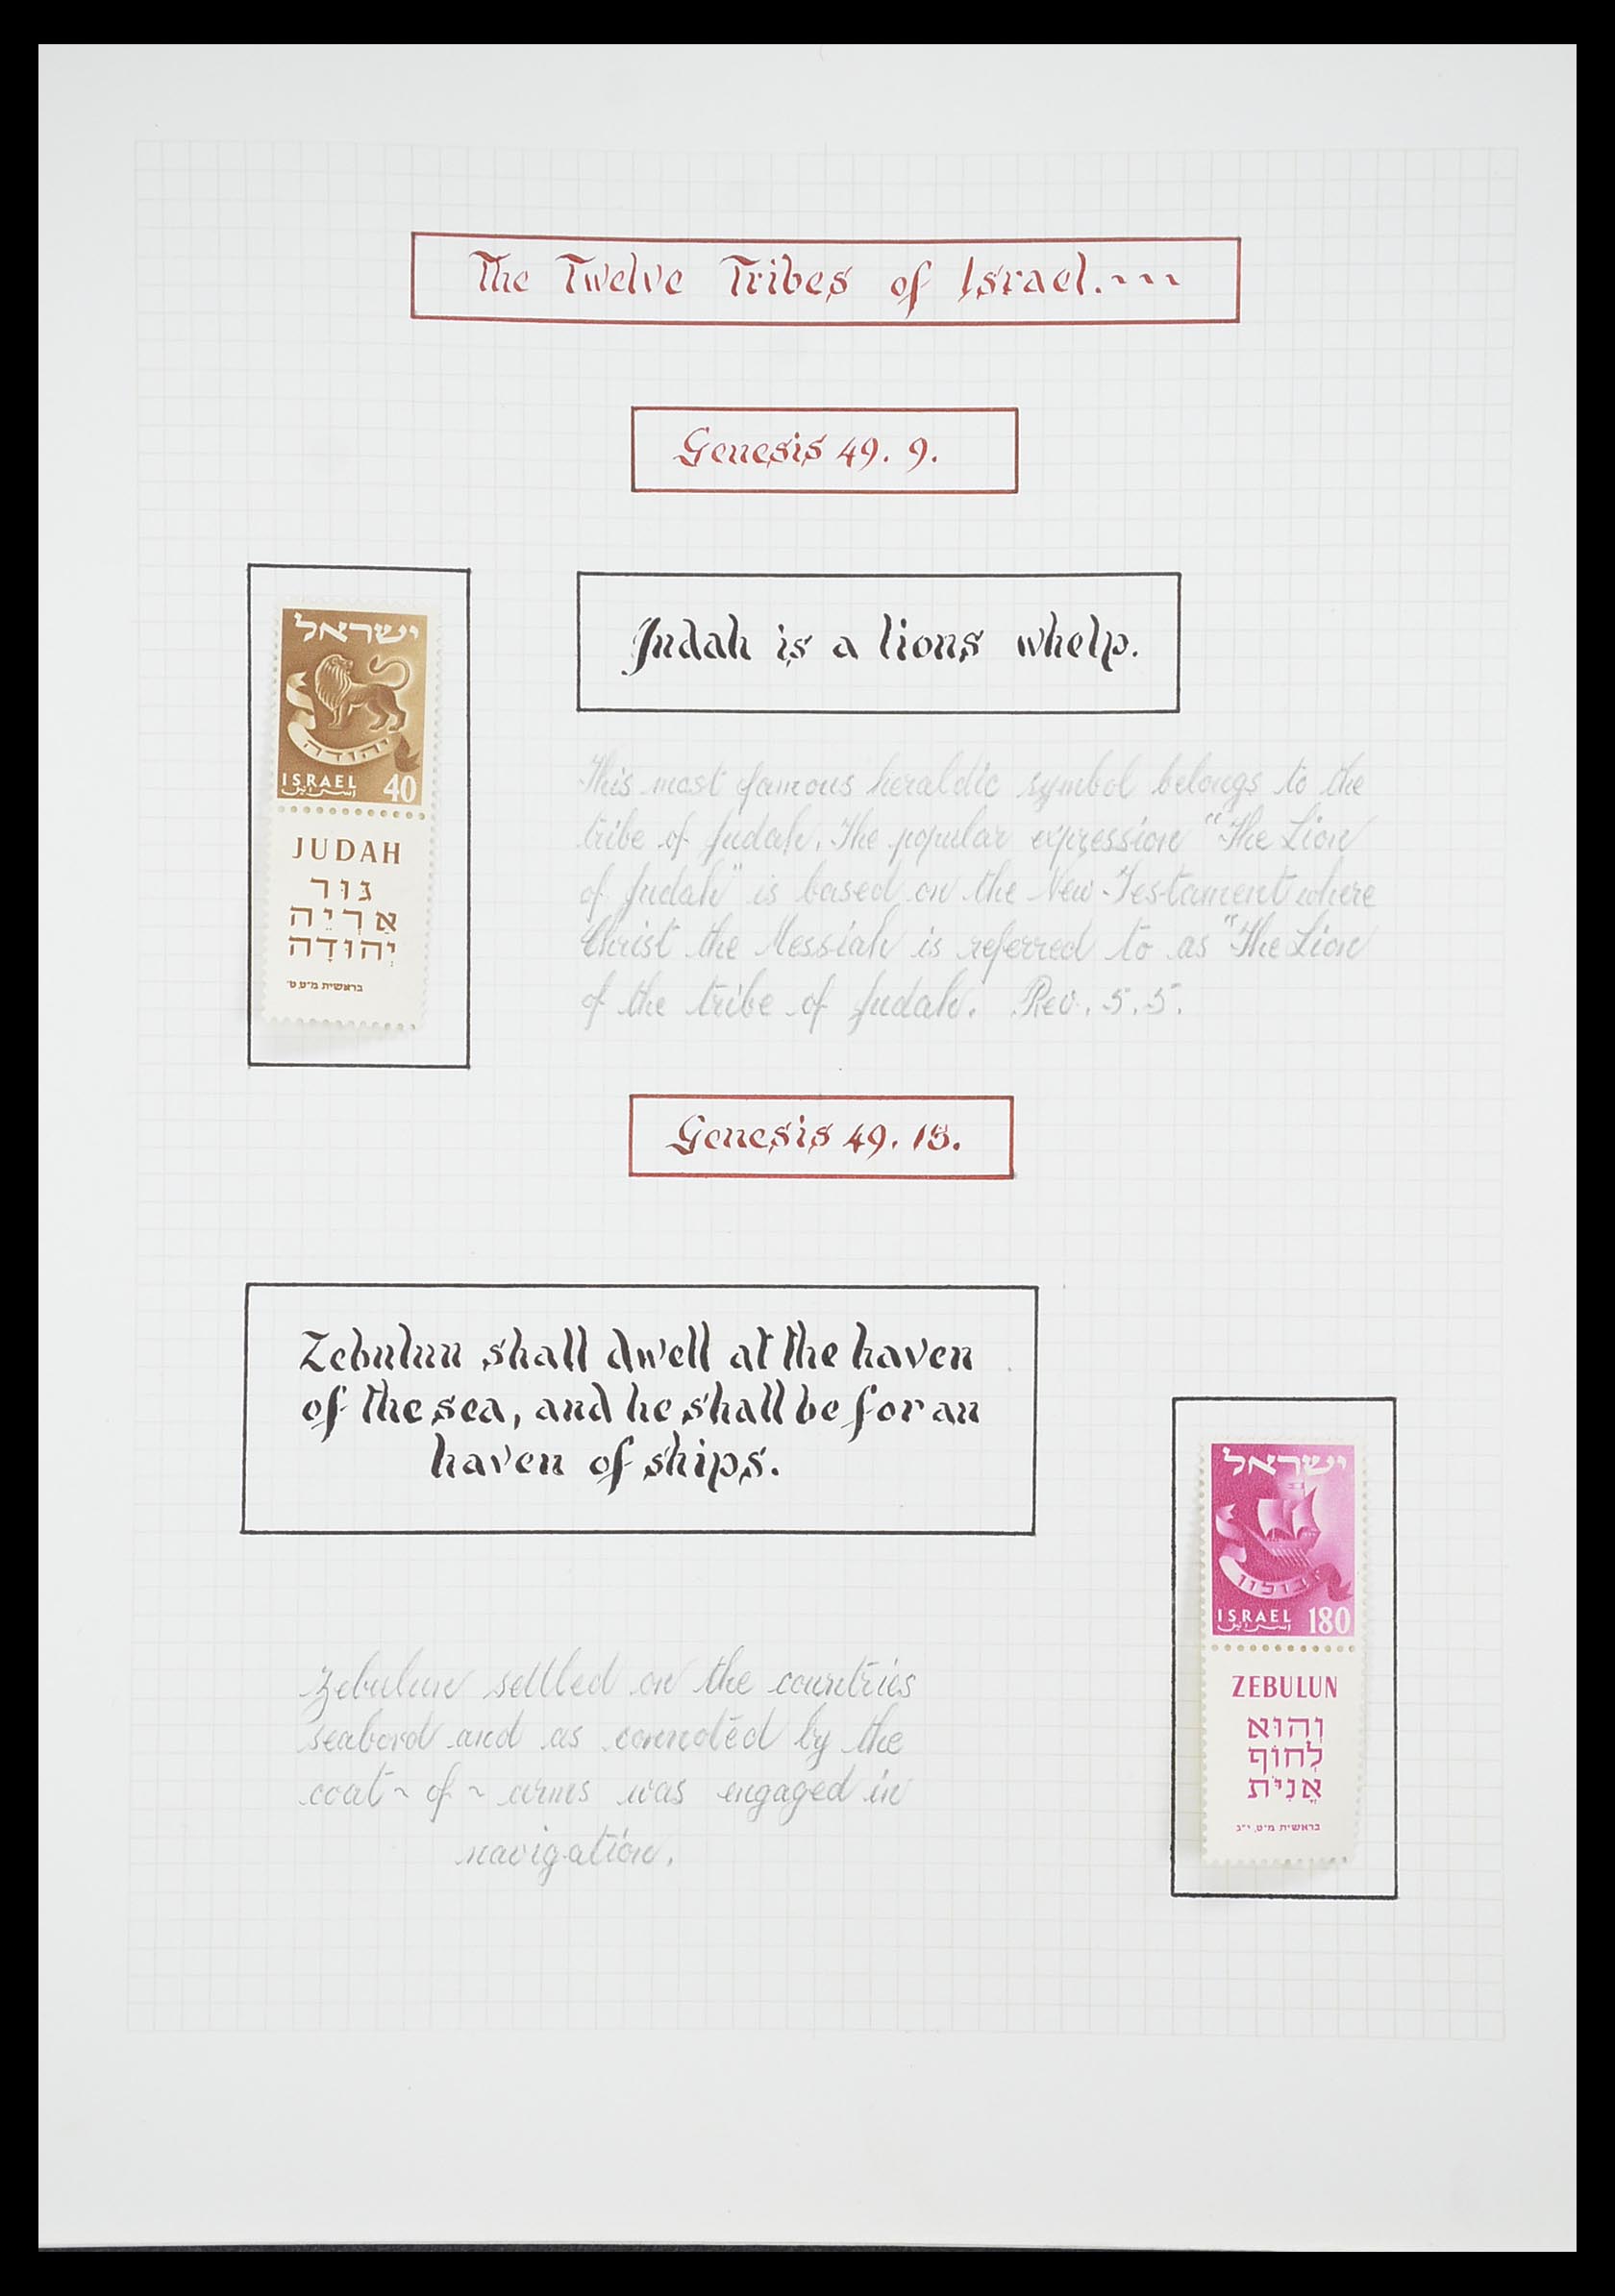 The Twelve Tribes of Israel. ~ ~ ~
Genesis 49. 9.
ישראל
יהודה
ISRAEL 40
اسرائيل
JUDAH
גּוּר
אַרְיֵה
יְהוּדָה
בראשית מ״ט, ט׳
Judah is a lions whelp.
This most famous heraldic symbol belongs to the
tribe of Judah. The popular expression "The Lion
of Judah" is based on the New-Testament where
Christ the Messiah is referred to as "The Lion
of the tribe of Judah. Rev. 5. 5.
Genesis 49. 13.
Zebulun shall dwell at the haven
of the sea, and he shall be for an
haven of ships.
Zebulun settled on the countries
seabord and as connoted by the
coat ~ of ~ arms was engaged in
navigation.
ישראל
זבולון
ISRAEL 180
اسرائيل
ZEBULUN
וְהוּא
לְחוֹף
אֳנִיֹּת
בראשית מ״ט, י״ג